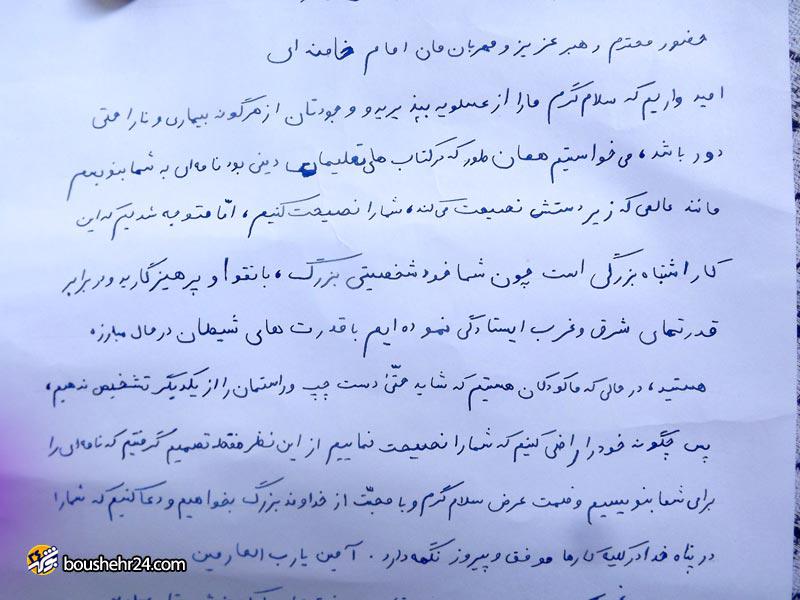 حضور محترم رهبر عزیز و مهربان مان امام خامنه ای
امید واریم که سلام گرم ما را از عسلویه بپذیرید و وجودتان از هرگونه بیماری و ناراحتی
دور باشد، می خواستیم همان طور که در کتاب های تعلیمات دینی بود نامه ای به شما بنویسیم
مانند عالمی که زیر دستش نصیحت می کند، شما را نصیحت کنیم، امّا متوجه شدیم که این
کار اشتباه بزرگی است چون شما خود شخصیتی بزرگ، با تقوا و پرهیزگارید و در برابر
قدرتهای شرق و غرب ایستادگی نموده ایم با قدرت های شیطان در حال مبارزه
هستید، در حالی که ما کودکان هستیم که شاید حتّی دست چپ و راستمان را از یکدیگر تشخیص ندهیم،
پس چگونه خود را راضی کنیم که شما را نصیحت نماییم از این نظر فقط تصمیم گرفتیم که نامه ای را
برای شما بنویسیم و ضمن عرض سلام گرم و با محبّت از خداوند بزرگ بخواهیم و دعا کنیم که شما را
در پناه خدا در کلیه کارها موفق و پیروز نگهدارد. آمین یا رب العارمین
boushehr24.com